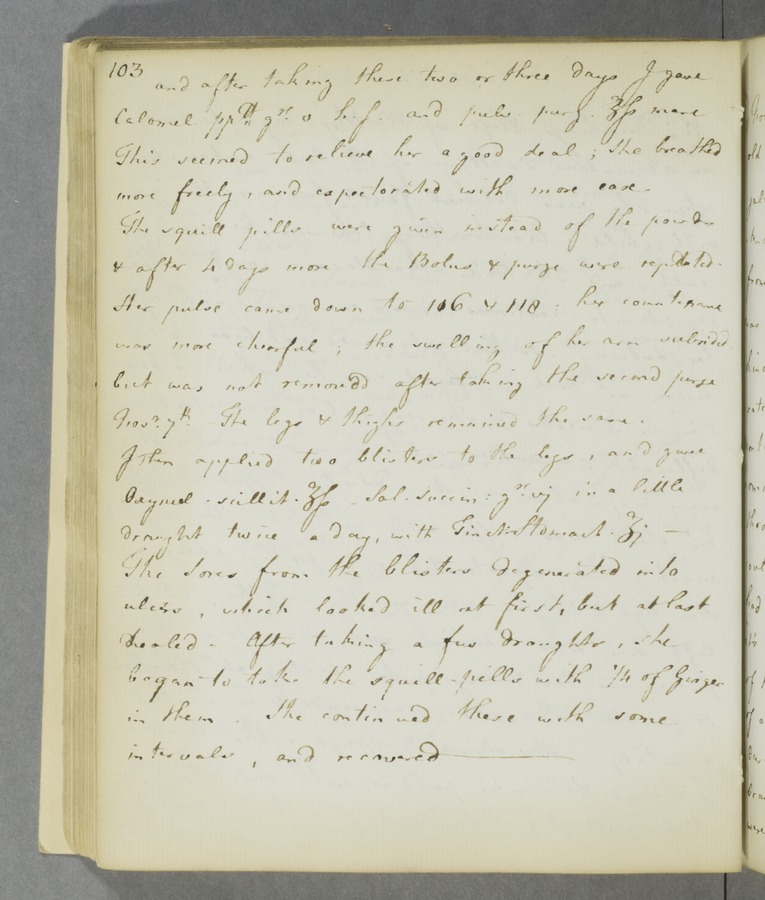 103
and after taking these two or three days I gave
Calomel ppᵗᵗ gʳ. v h.s. and pulv. purg. ʒſs mane
This seemed to relieve her a good deal ; She breathed
more freely , and expectorated with more ease
The squill pills were given instead of the powdr
& after 4 days more the Bolus & purge were repeated.
Her pulse came down to 116 & 118 : her countenance
was more chearful ; the swelling of her arm subsided
but was not removed after taking the second purge
Novʳ. 7ᵗʰ The legs & thighs remained the same .
I then applied two blisters to the legs , and gave
Oxymel . scillit . ʒſs Sal . succin : gʳ. vj in a little
draught twice a day, with Tinct. Stomach . ʒj —
The sores from the blisters degenerated into
ulcers , which looked ill at first, but at last
healed . After taking a few draughts , she
began to take the squill-pills with 1/4 of Ginger
in them . She continued these with some
intervals , and recovered —